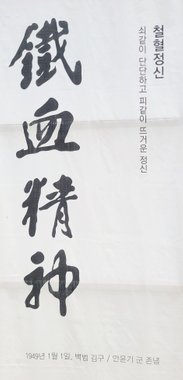 鐵血精神
철혈정신
쇠같이 단단하고 피같이 뜨거운 정신
1949년 1월 1일, 백범 김구 / 안윤기 군 존념